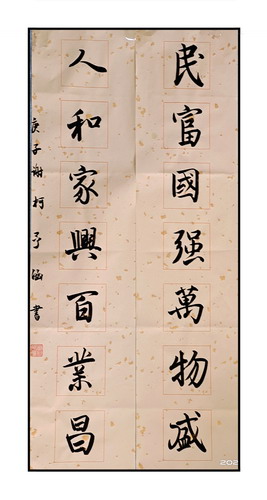 民富國强萬物盛
人和家興百業昌
庚子谢柯予涵書
202